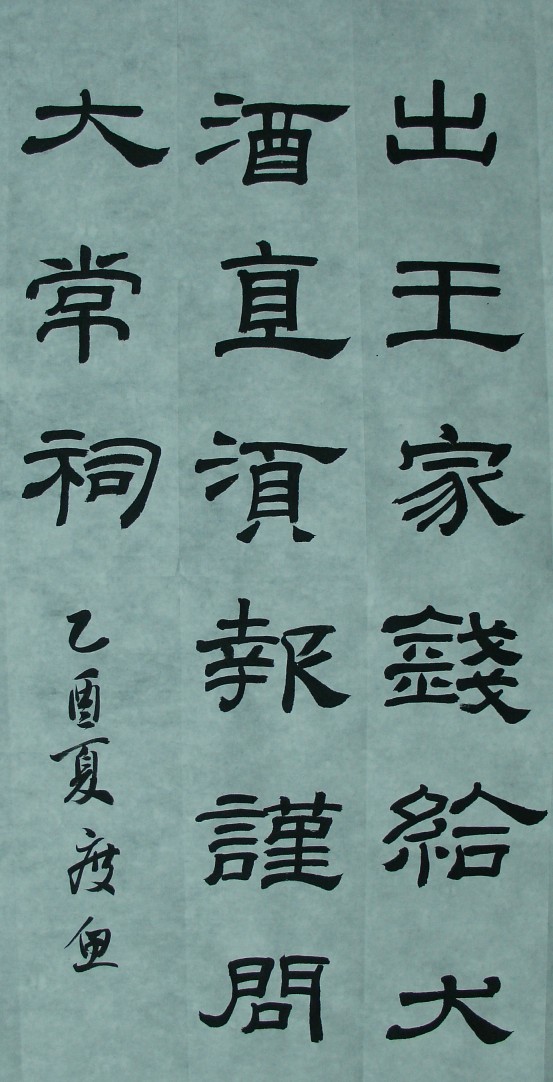 出王家錢給犬
酒直湏報謹問
大常祠
乙酉夏